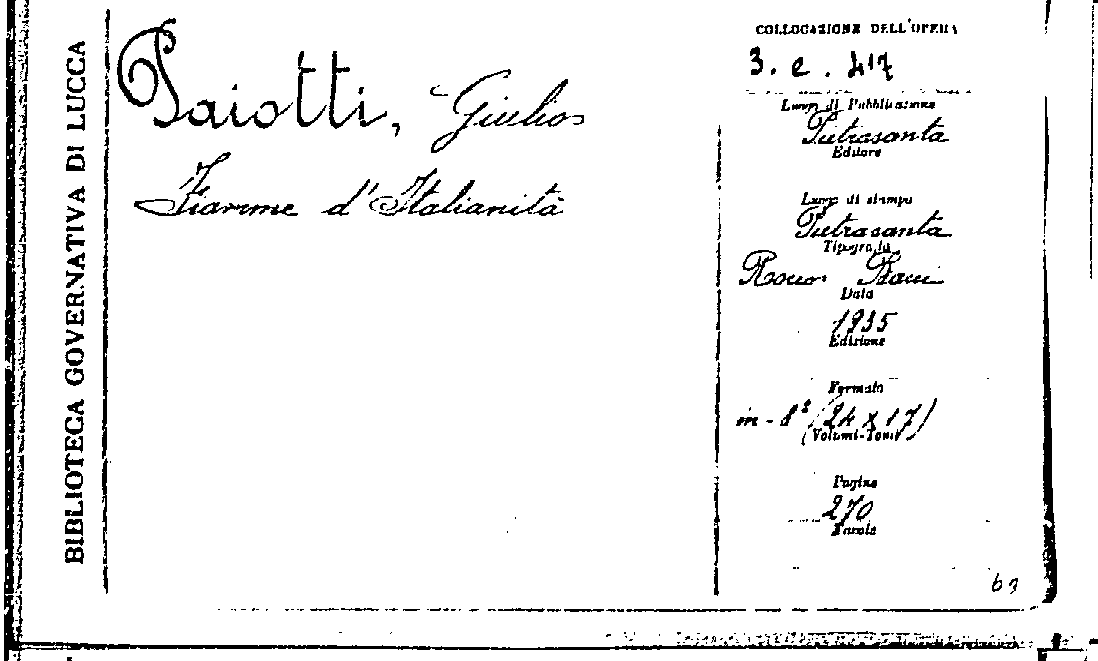 BIBLIOTECA GOVERNATIVA DI LUCCA
Paiotti, Giulio
Fiamme d'Italianità
COLLOCAZIONE DELL'OPERA
3. e. 417
Luogo di Pubblicazione
Pietrasanta
Editore
Luogo di stampa
Pietrasanta
Tipografia
Data
1935
Edizione
Formato
in-8° (24 x 17)
(Volumi-Tomi)
Pagine
270
Tavole
63